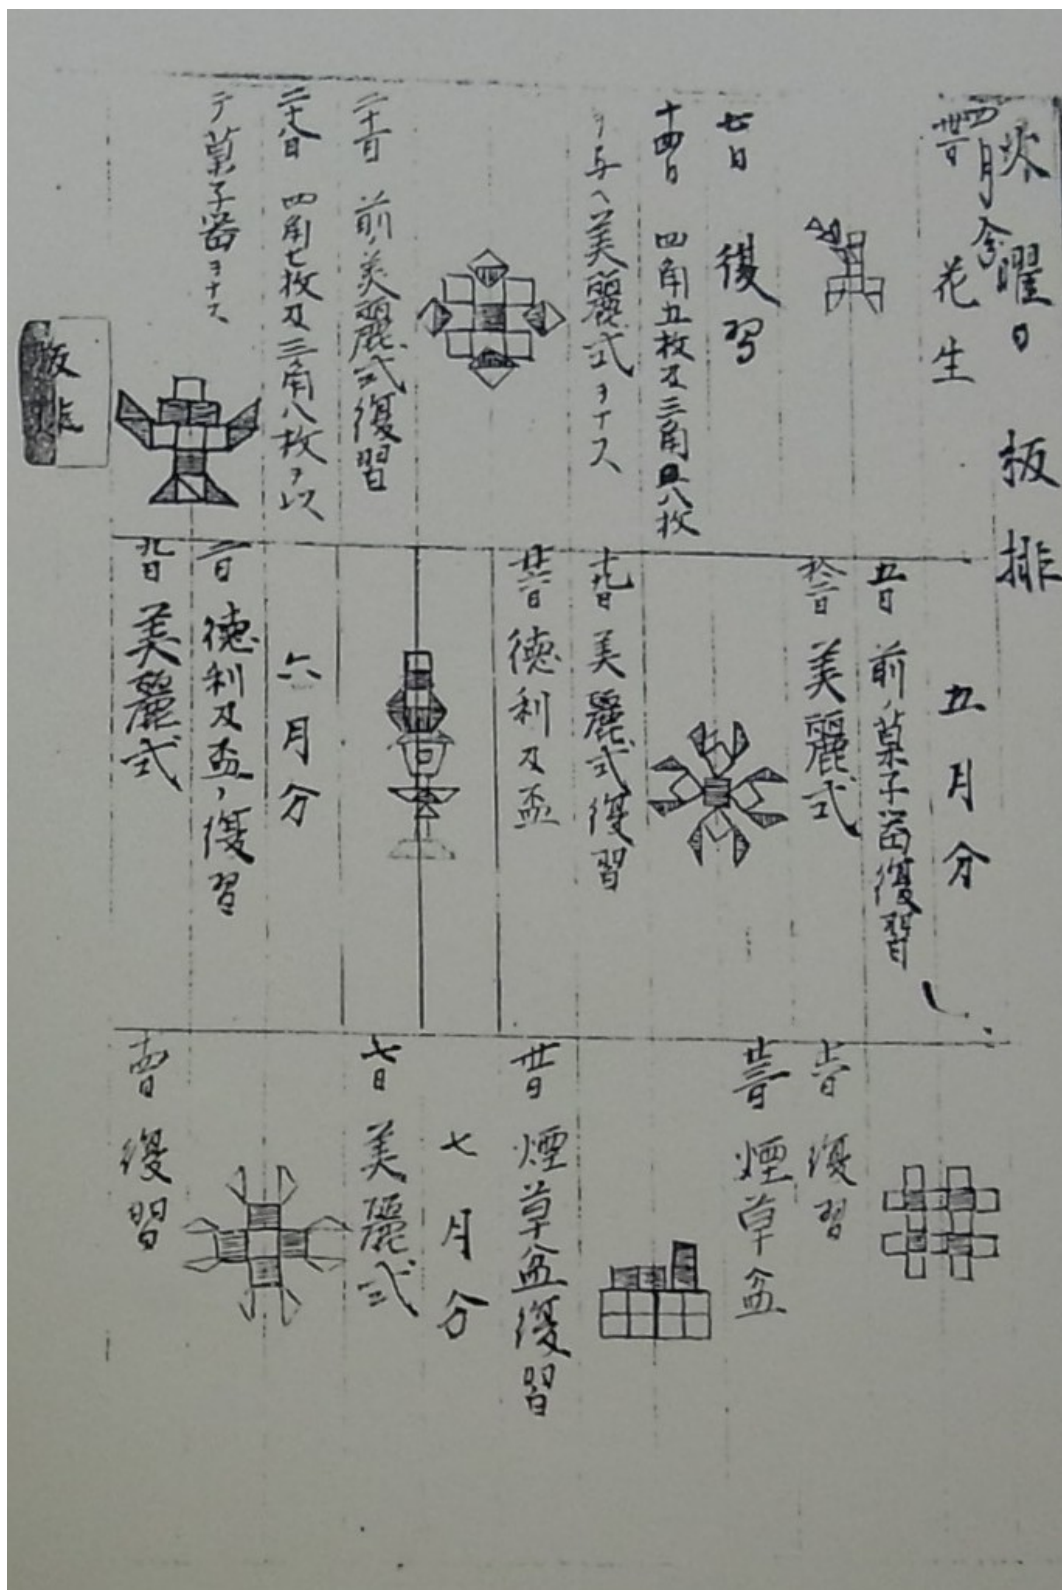 火曜日 板排
四月分
花生
七日 復習
十四日 四角五枚及三角八枚
ヲ与ヘ美麗式ヲナス
二十一日 前ノ美麗式復習
二十八日 四角七枚及三角八枚ヲ以
テ菓子器ヲナス
板排
五月分
五日 前ノ菓子器復習
拾二日 美麗式
十九日 美麗式復習
廿六日 徳利及盃
六月分
二日 徳利及盃ノ復習
九日 美麗式
十六日 復習
廿三日 煙草盆
卅日 煙草盆復習
七月分
七日 美麗式
十四日 復習